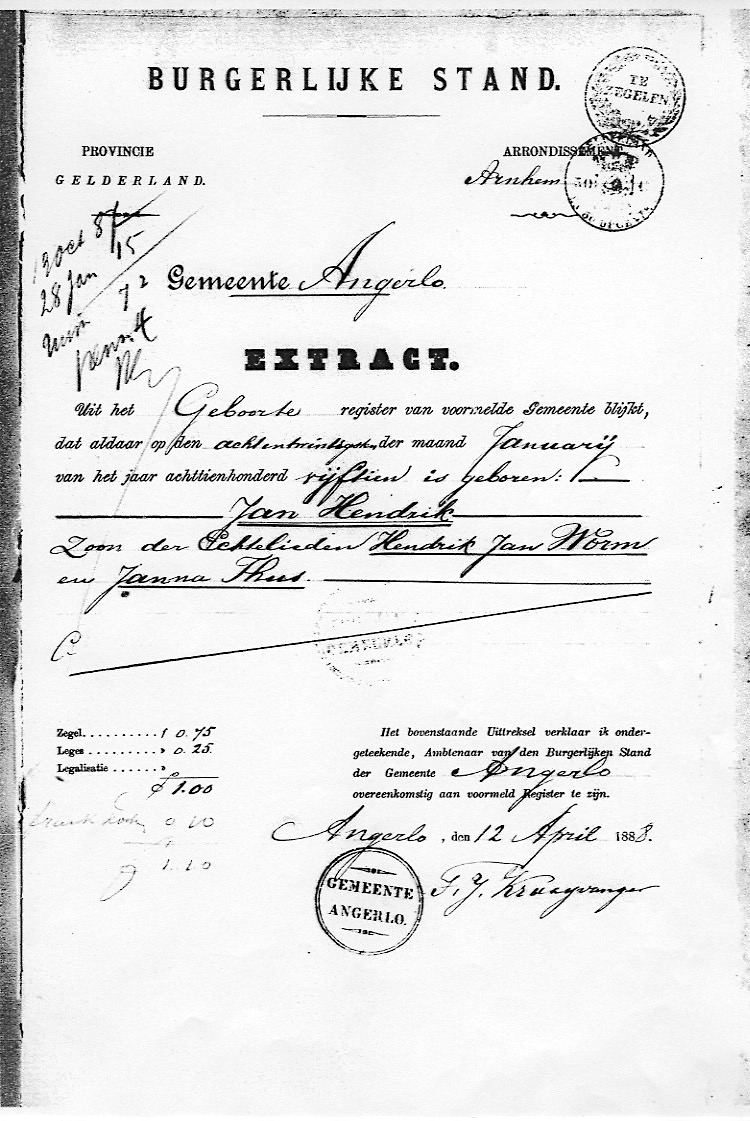 BURGERLIJKE STAND.
TE
ZEGELEN
PROVINCIE
GELDERLAND.
ARRONDISSEMENT
Arnhem
13 Oct 87
28 Jan 15
72
Gemeente Angerlo.
EXTRACT.
Uit het Geboorte register van voormelde Gemeente blijkt,
dat aldaar op den achtentwintigsten der maand Januarij
van het jaar achttienhonderd vijftien is geboren:
Jan Hendrik
Zoon der Echtelieden Hendrik Jan Worm
en Janna Thus.
Zegel.......... f 0.75
Leges .......... » 0.25
Legalisatie ...... »
f 1.00
0 10
1.10
Het bovenstaande Uittreksel verklaar ik onder-
geteekende, Ambtenaar van den Burgerlijken Stand
der Gemeente Angerlo
overeenkomstig aan voormeld Register te zijn.
Angerlo, den 12 April 1888.
GEMEENTE
ANGERLO.